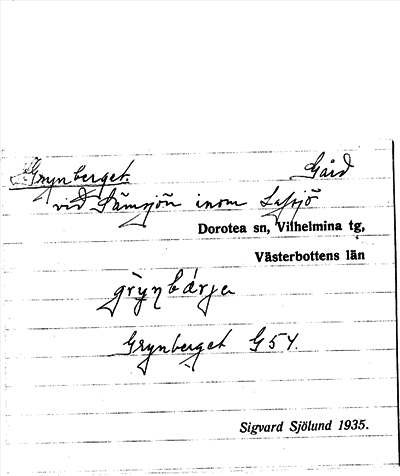 Grynberget. Gård
vid Sämsjön inom Lasjö
Dorotea sn, Vilhelmina tg,
Västerbottens län
grỳnbárjə
Grynberget G54.
Sigvard Sjölund 1935.